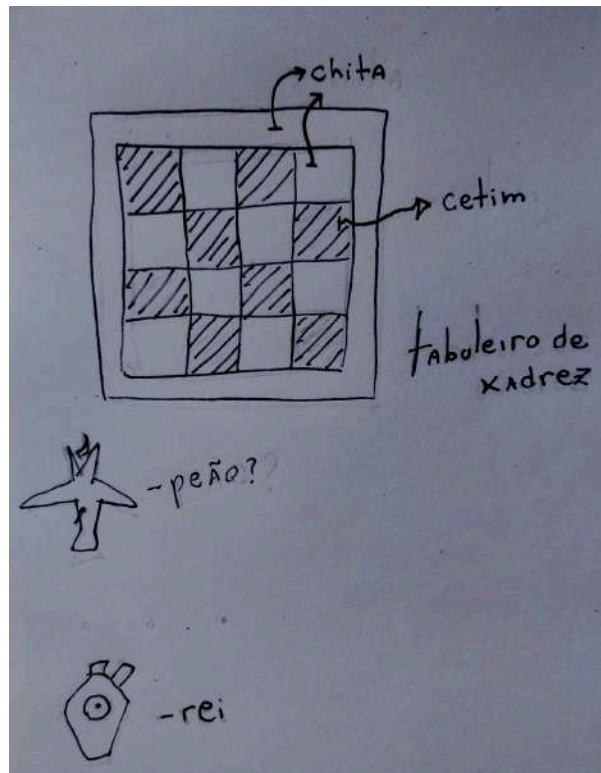 chitA
cetim
tAbuleiro de
xAdrez
- peÃo?
- rei